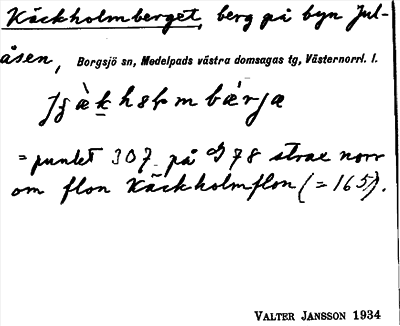 Käckholmberget, berg på byn Jul-
åsen, Borgsjö sn, Medelpads västra domsagas tg, Västernorrl. l.
= punkt 307 på J78 strax norr
om flon Käckholmflon (= 165).
VALTER JANSSON 1934